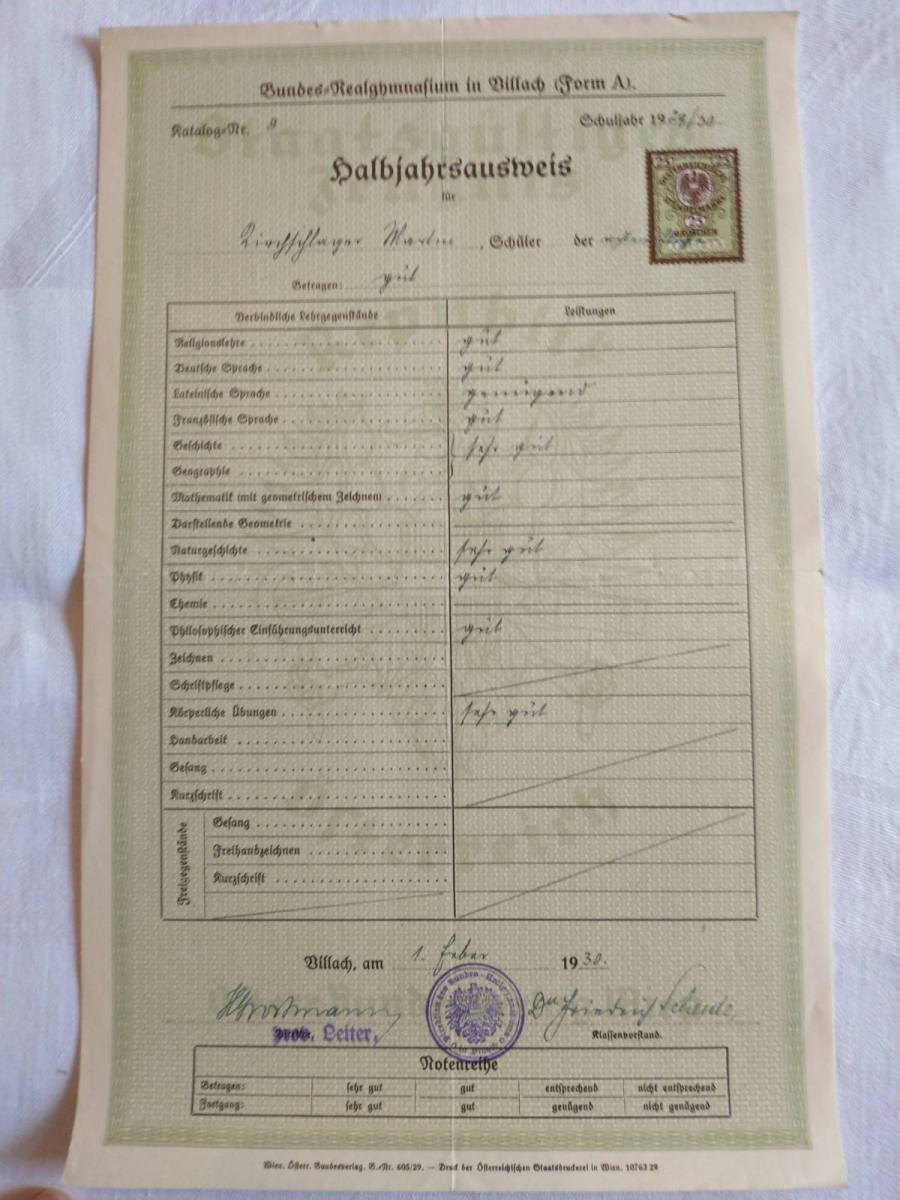 Bundes-Realgymnasium in Villach (Form A).
Katalog-Nr. 9 Schuljahr 1929/30
Halbjahrsausweis
für
Kirchschlager Martin, Schüler der
Betragen: gut
Verbindliche Lehrgegenstände Leistungen
Religionslehre gut
Deutsche Sprache gut
Lateinische Sprache genügend
Französische Sprache gut
Geschichte sehr gut
Geographie
Mathematik (mit geometrischem Zeichnen) gut
Darstellende Geometrie
Naturgeschichte sehr gut
Physik gut
Chemie
Philosophischer Einführungsunterricht gut
Zeichnen
Schriftpflege
Körperliche Übungen sehr gut
Handarbeit
Gesang
Kurzschrift
Freigegenstände
Gesang
Freihandzeichnen
Kurzschrift
Villach, am 1. Feber 1930.
Dr Friedrich
prov. Leiter, Klassenvorstand.
Notenreihe
Betragen: sehr gut gut entsprechend nicht entsprechend
Fortgang: sehr gut gut genügend nicht genügend
Wien. Österr. Bundesverlag. B.-Nr. 605/29. — Druck der Österreichischen Staatsdruckerei in Wien. 10763 29